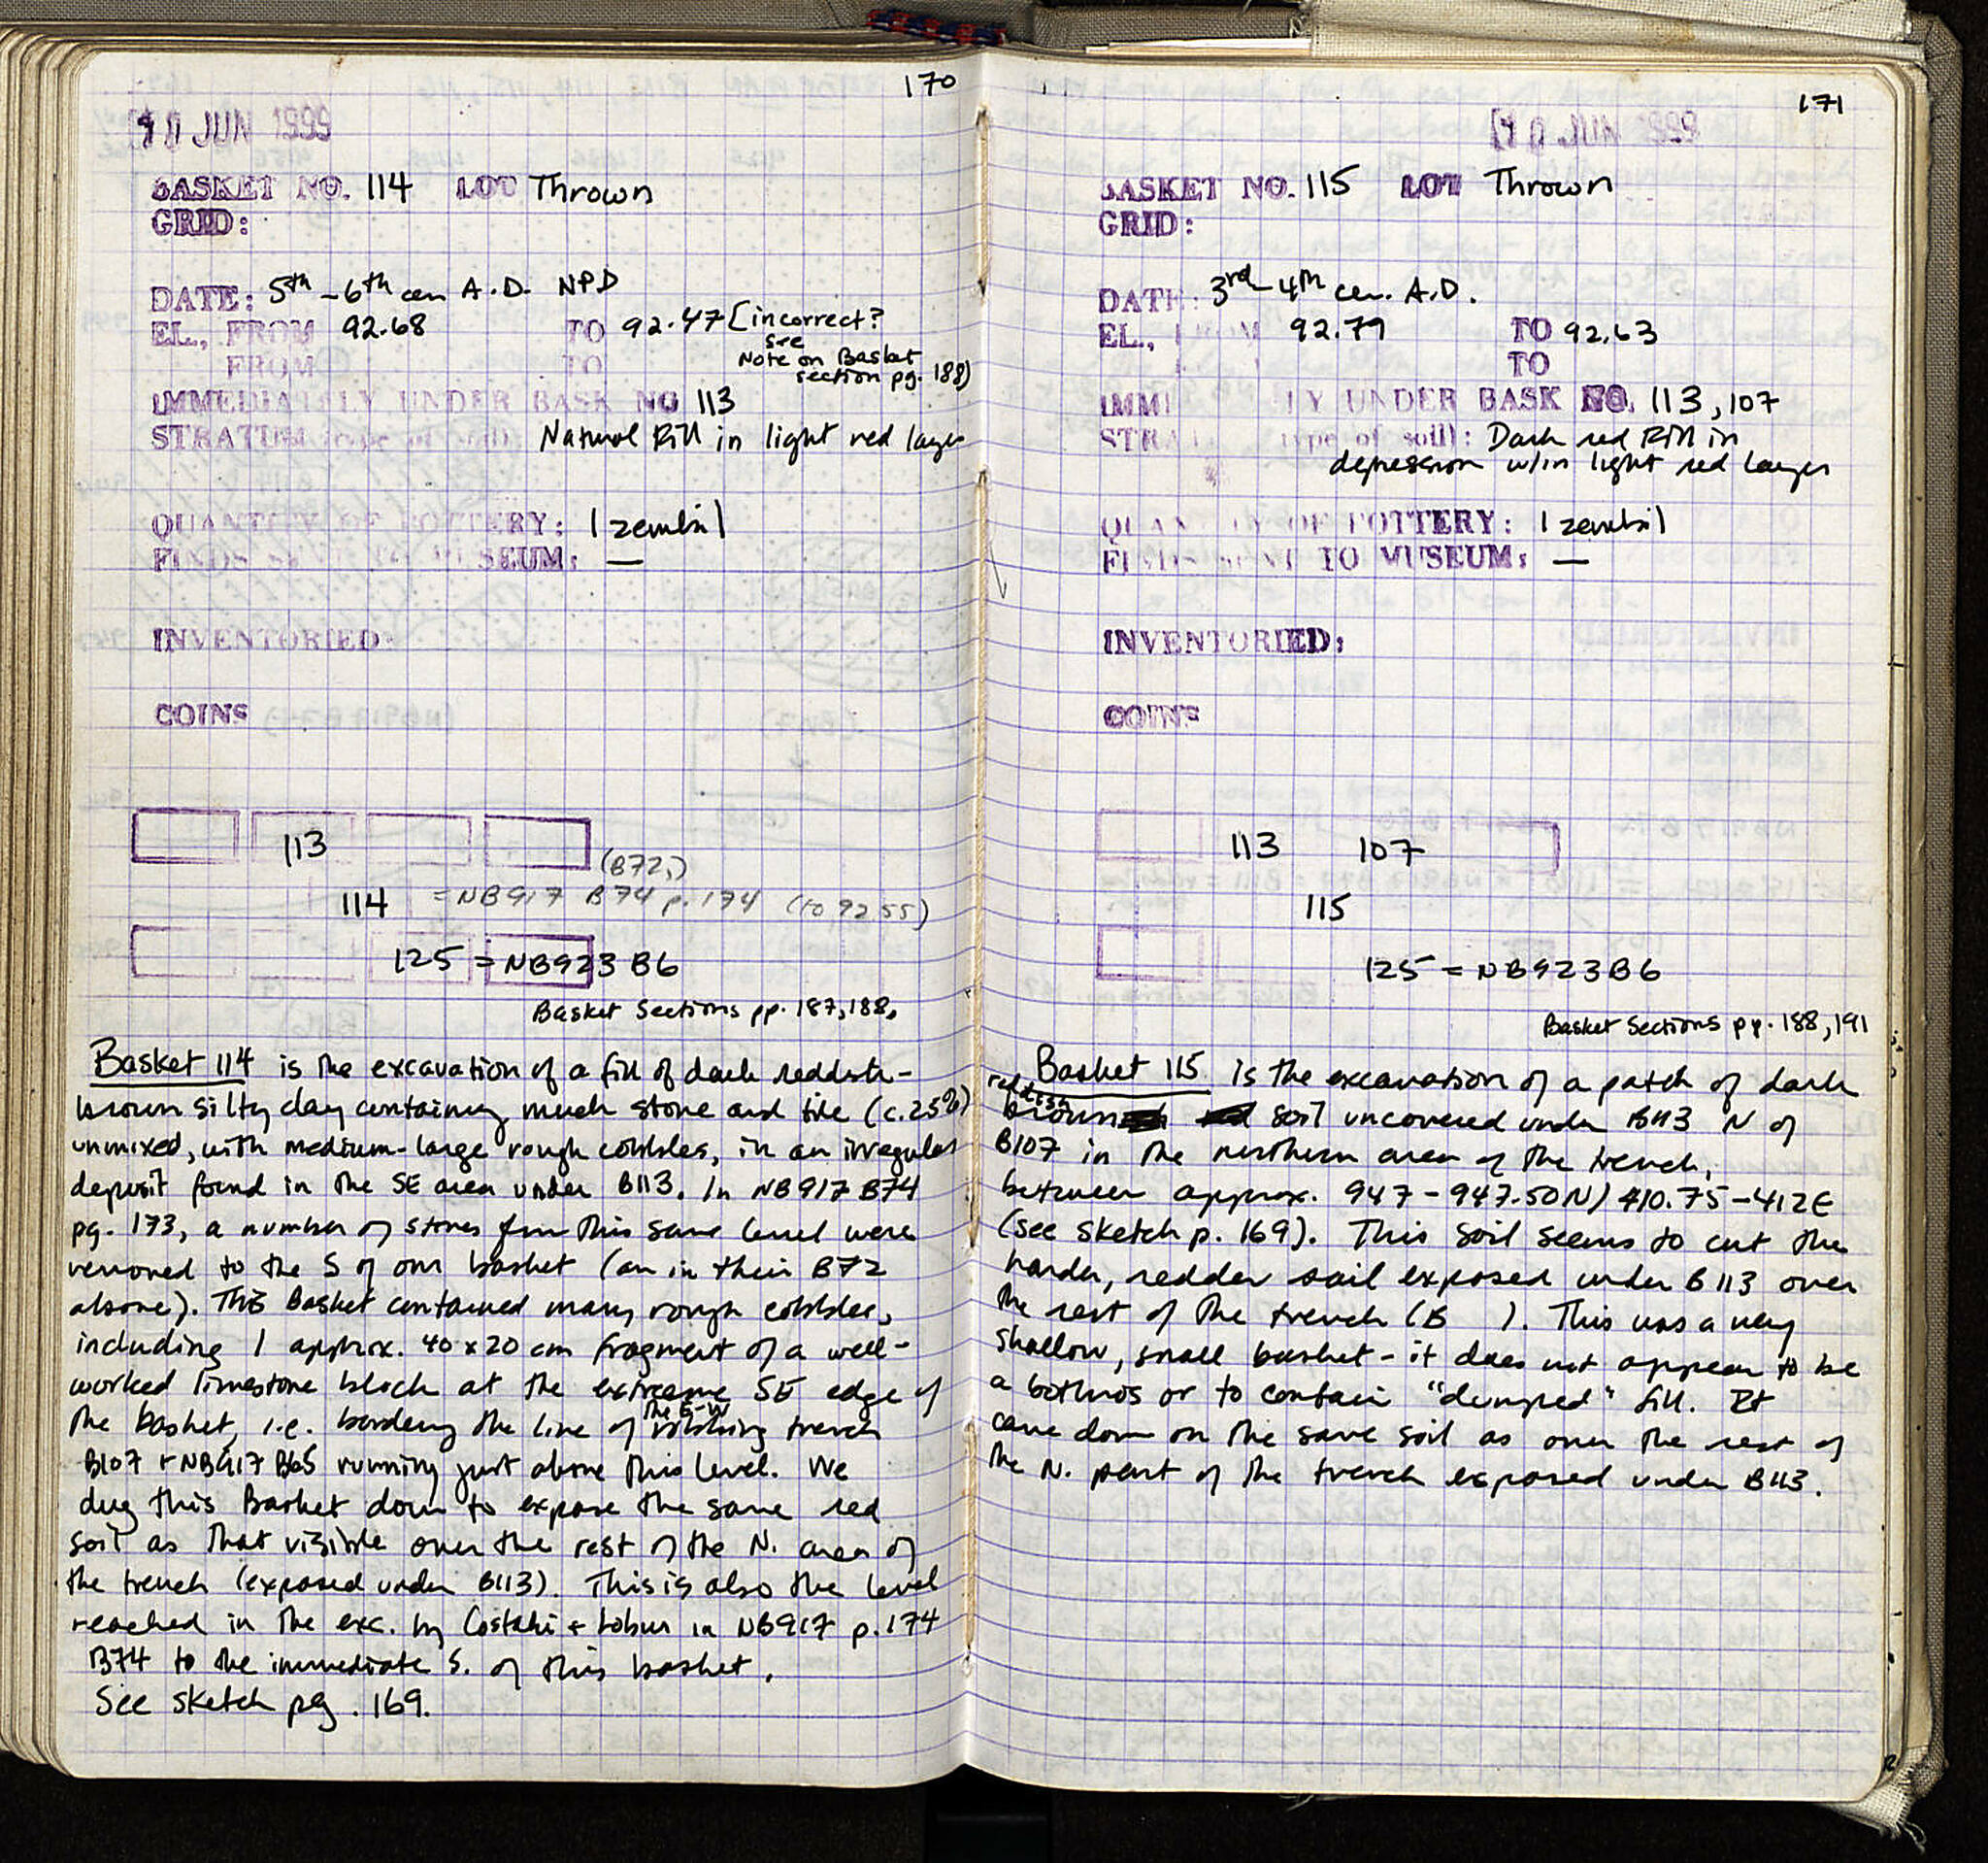 170
10 JUN 1999
BASKET NO. 114 LOT Thrown
GRID:
DATE: 5th - 6th cen A.D. NPD
EL., FROM 92.68 TO 92.47 [incorrect?
see
FROM TO Note on Basket
section pg. 188)
IMMEDIATELY UNDER BASK NO 113
STRATUM (type of soil): Natural Fill in light red layer
QUANTITY OF POTTERY: 1 zembil
FINDS SENT TO MUSEUM: —
INVENTORIED:
COINS
113
(B72,)
114 = NB917 B74 p. 174 (to 92.55)
125 = NB923 B6
Basket Sections pp. 187, 188,
Basket 114 is the excavation of a fill of dark reddish-
brown silty clay containing much stone and tile (c.25%)
unmixed, with medium-large rough cobbles, in an irregular
deposit found in the SE area under B113. In NB917 B74
pg. 173, a number of stones from this same level were
removed to the S of our basket (an in their B72
above). This Basket contained many rough cobbles,
including 1 approx. 40 x 20 cm fragment of a well-
worked limestone block at the extreme SE edge of
the basket, i.e. bordering the line of the E-W robbing trench
B107 + NB917 B65 running just above this level. We
dug this Basket down to expose the same red
soil as that visible over the rest of the N. area of
the trench (exposed under B113). This is also the level
reached in the exc. by Costaki + Tobin in NB917 p. 174
B74 to the immediate S. of this basket.
See sketch pg. 169.
171
10 JUN 1999
BASKET NO. 115 LOT Thrown
GRID:
DATE: 3rd - 4th cen. A.D.
EL., FROM 92.79 TO 92.63
TO
IMMEDIATELY UNDER BASK NO. 113, 107
STRATUM (type of soil): Dark red Fill in
depression w/in light red layer
QUANTITY OF POTTERY: 1 zembil
FINDS SENT TO MUSEUM: —
INVENTORIED:
COINS
113 107
115
125 = NB923 B6
Basket Sections pp. 188, 191
Basket 115 is the excavation of a patch of dark
reddish brown soil uncovered under B113 N of
B107 in the northern area of the trench,
between approx. 947 - 947.50N / 410.75 - 412E
(see sketch p. 169). This soil seems to cut the
harder, redder soil exposed under B113 over
the rest of the trench (B ). This was a very
shallow, small basket - it does not appear to be
a bothros or to contain "dumped" fill. It
came down on the same soil as over the rest of
the N. part of the trench exposed under B113.